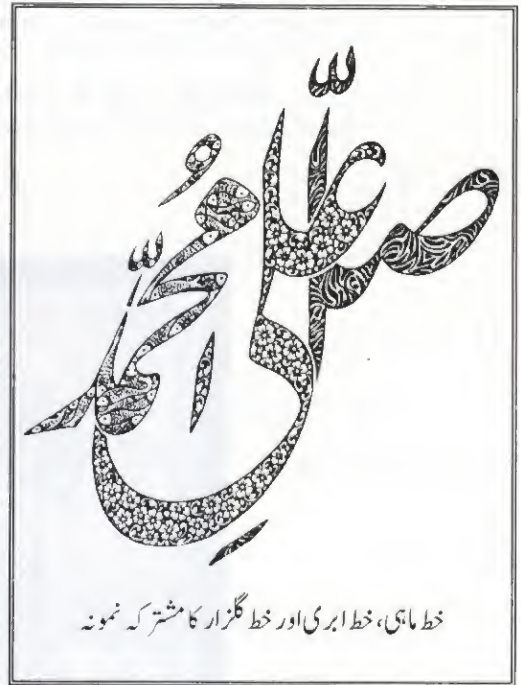 صَلِّ عَلٰی مُحَمَّدٍ
خط ماہی، خط ابری اور خط گلزار کا مشترکہ نمونہ